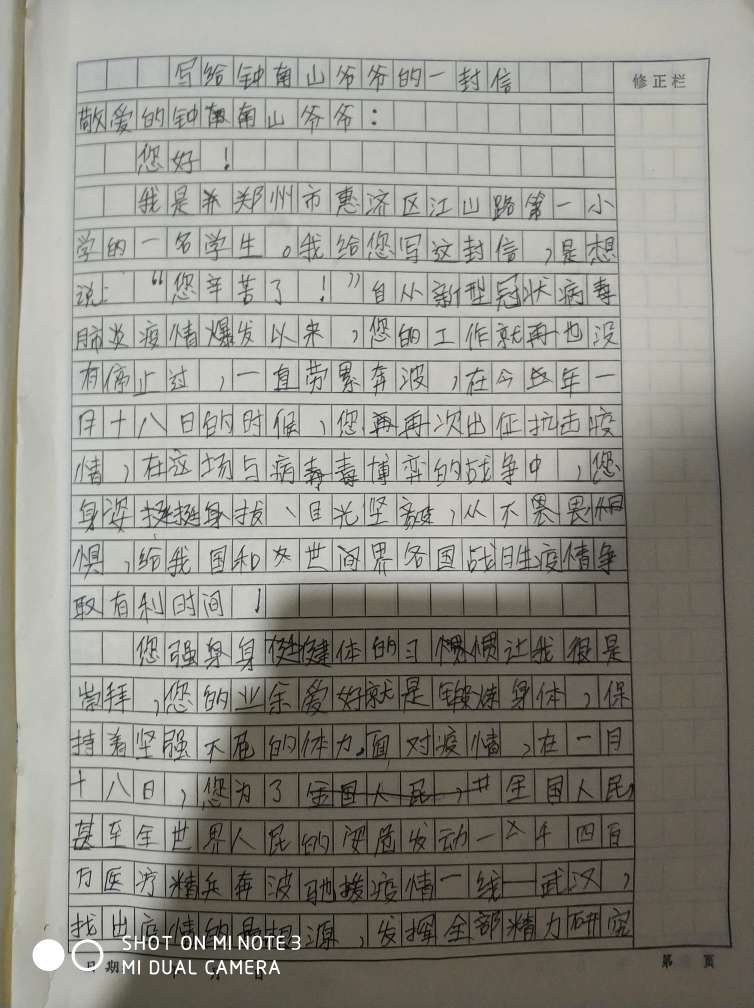 写给钟南山爷爷的一封信
修正栏
敬爱的钟南山爷爷：
您好！
我是郑州市惠济区江山路第一小
学的一名学生。我给您写这封信，是想
说：“您辛苦了！”自从新型冠状病毒
肺炎疫情爆发以来，您的工作就再也没
有停止过，一直劳累奔波，在今年一
月十八日的时候，您再次出征抗击疫
情，在这场与病毒博弈的战争中，您
身姿挺拔、目光坚毅，从不畏
惧，给我国和世界各国战胜疫情争
取有利时间！
您强身健体的习惯让我很是
崇拜，您的业余爱好就是锻炼身体，保
持着坚强不屈的体力。面对疫情，在一月
十八日，您为了全国人民，
甚至全世界人民的安危发动一千四百
万医疗精兵奔波驰援疫情一线——武汉，
找出疫情的源，发挥全部精力研究
SHOT ON MI NOTE 3
MI DUAL CAMERA
日期
第 页